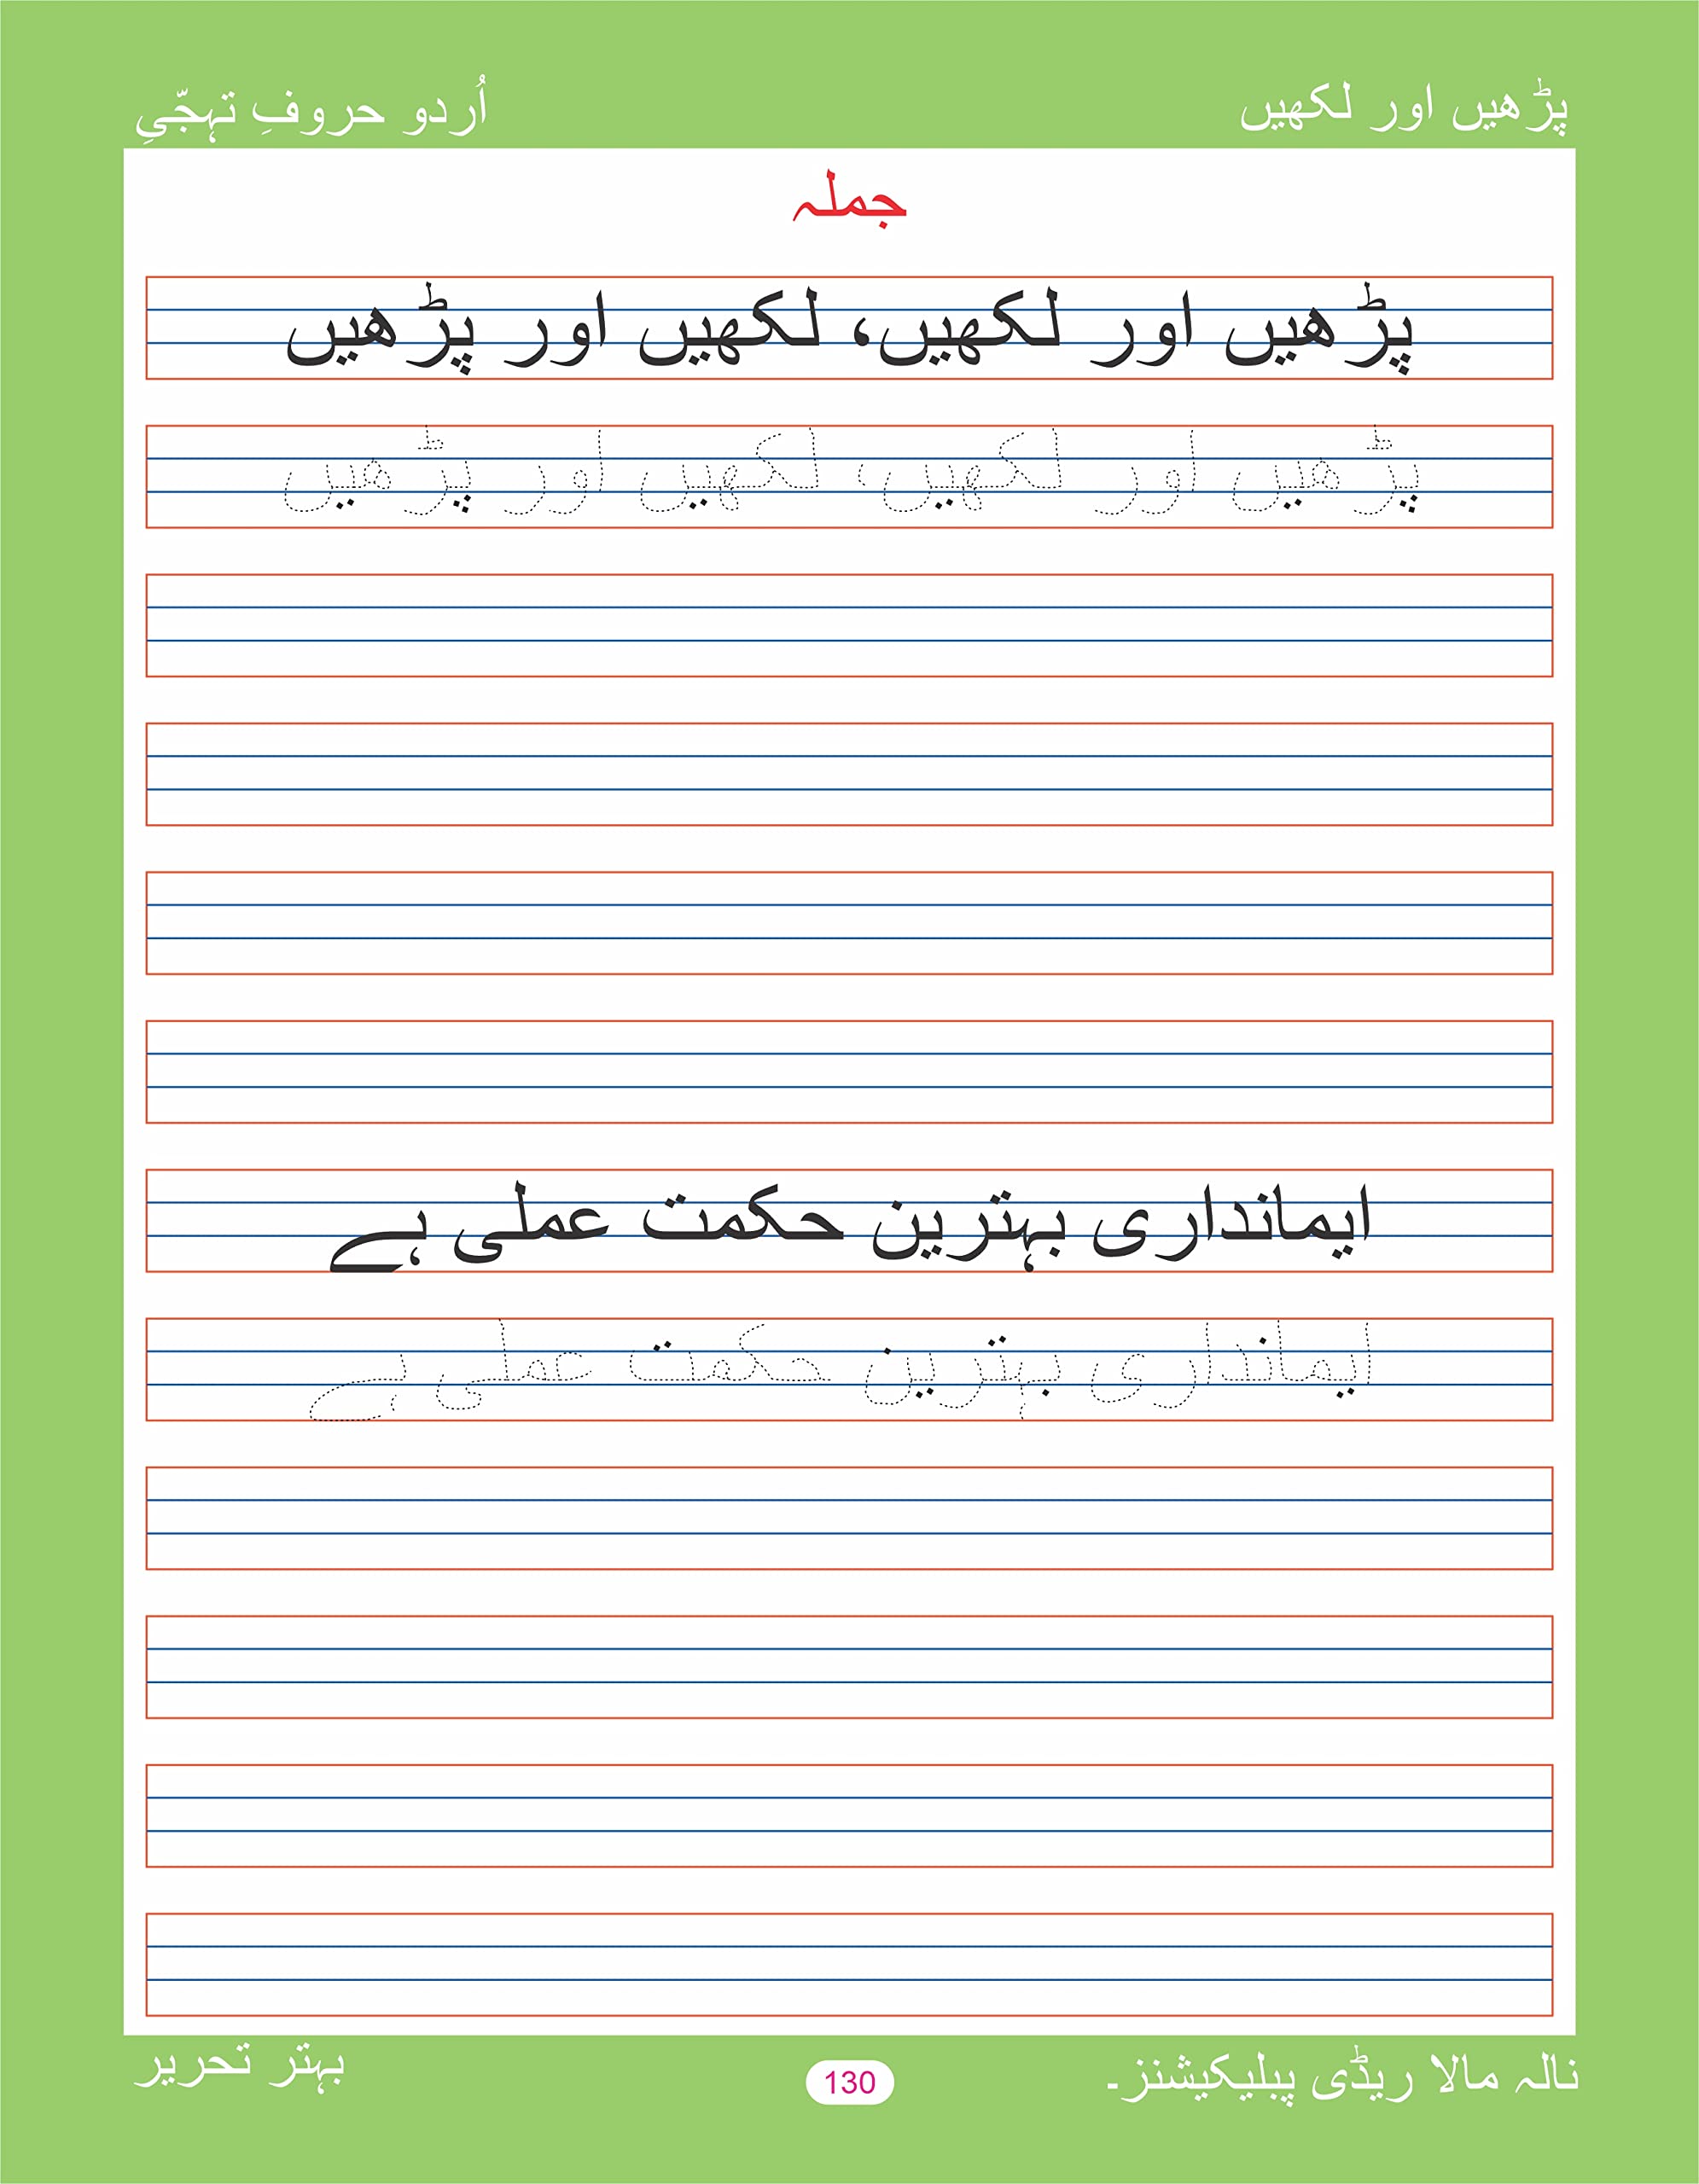 پڑھیں اور لکھیں
اُردو حروفِ تہجّیِ
جملہ
پڑھیں اور لکھیں، لکھیں اور پڑھیں
پڑھیں اور لکھیں، لکھیں اور پڑھیں
ایمانداری بہترین حکمت عملی ہے
ایمانداری بہترین حکمت عملی ہے
نالہ مالا ریڈی پبلیکیشنز۔
130
بہتر تحریر